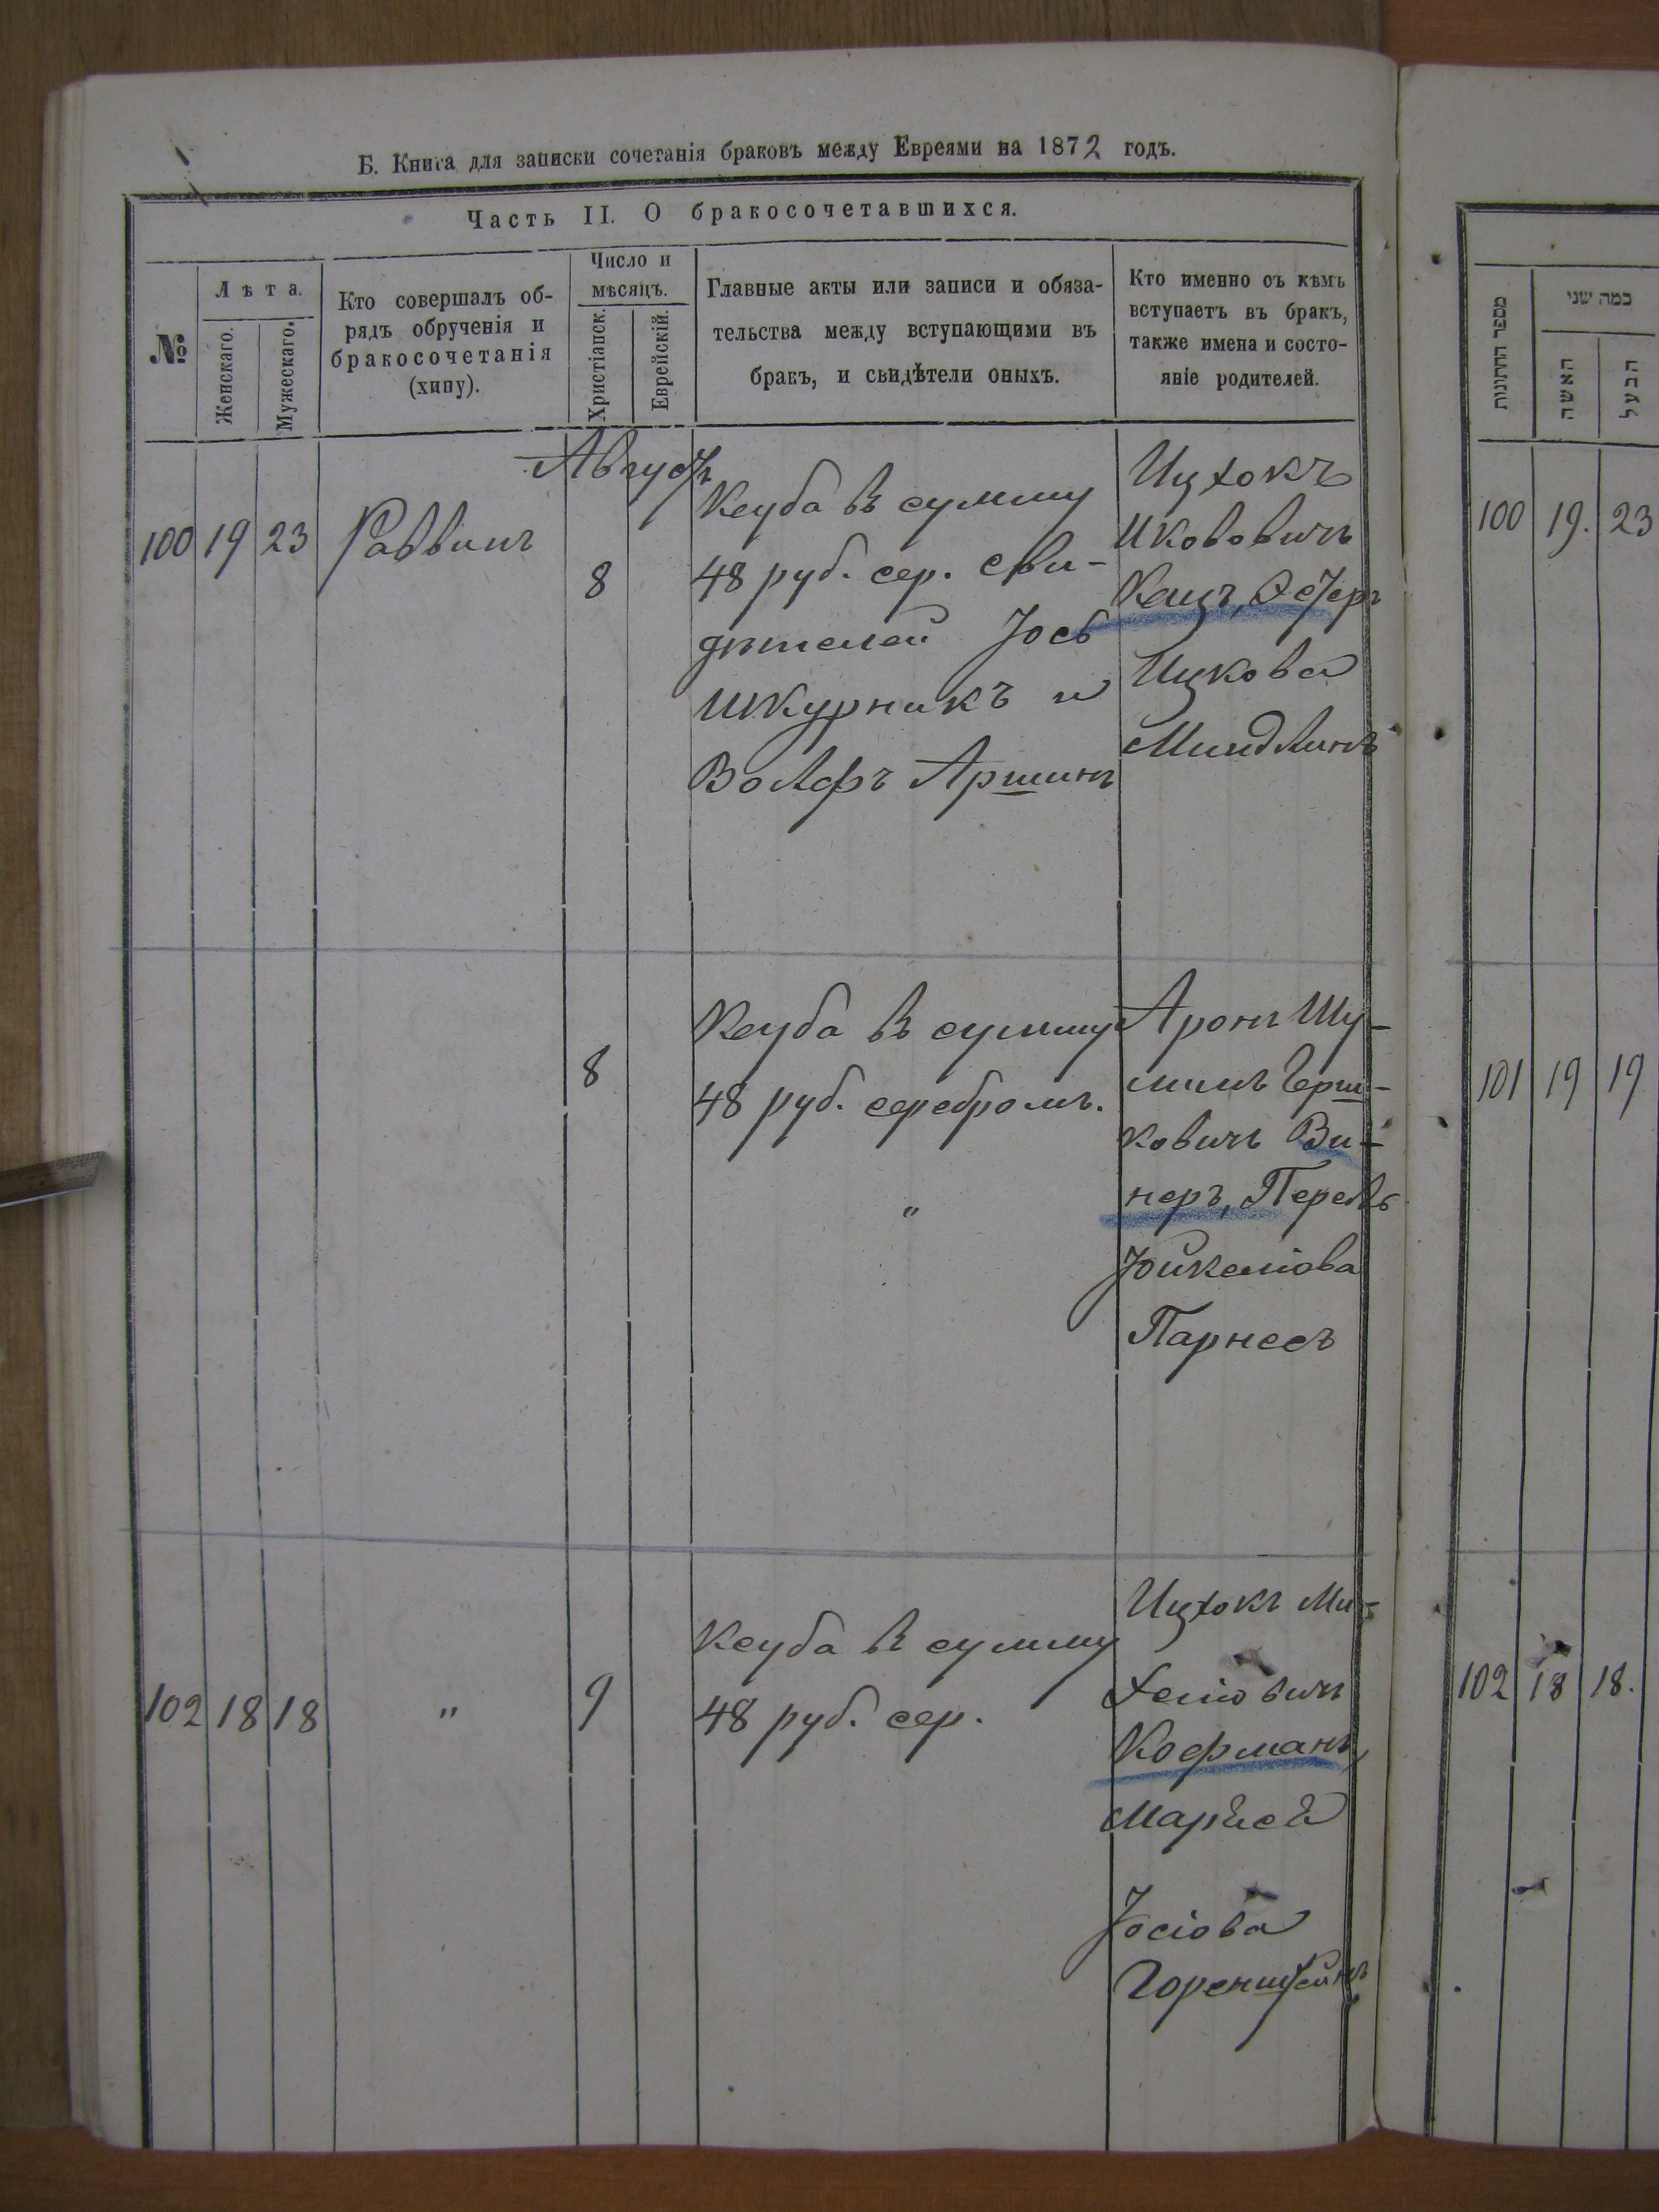 Б. Книга для записки сочетанія браковъ между Евреями на 1872 годъ.
Часть II. О бракосочетавшихся.
№
Лѣта.
Женскаго.
Мужескаго.
Кто совершалъ об-
рядъ обрученія и
бракосочетанія
(хипу).
Число и
мѣсяцъ.
Христіанск.
Еврейскій.
Главные акты или записи и обяза-
тельства между вступающими въ
бракъ, и свидѣтели оныхъ.
Кто именно съ кѣмъ
вступаетъ въ бракъ,
также имена и состо-
яніе родителей.
Августъ
100 19 23 Раввинъ
8
Кеуба въ сумму
48 руб. сер. Сви-
дѣтелей Іось
Шкурникъ и
Волфъ Аршинъ
Ицхокъ
Ицковичъ
Кацъ, Эстеръ
Ицкова
Миндлинъ
8
Кеуба въ сумму
48 руб. серебромъ.
"
Аронъ Шу-
лимъ Герш-
ковичъ Ви-
неръ, Перель
Іойкеліова
Парнесъ
102 18 18 " 9
Кеуба въ сумму
48 руб. сер.
Ицхокъ Ми-
хеліовичъ
Кофманъ,
Іосіова
Горенштейнъ
מספר החתונות
כמה שני
האשה
הבעל
100 19. 23
101 19 19
102 18 18.